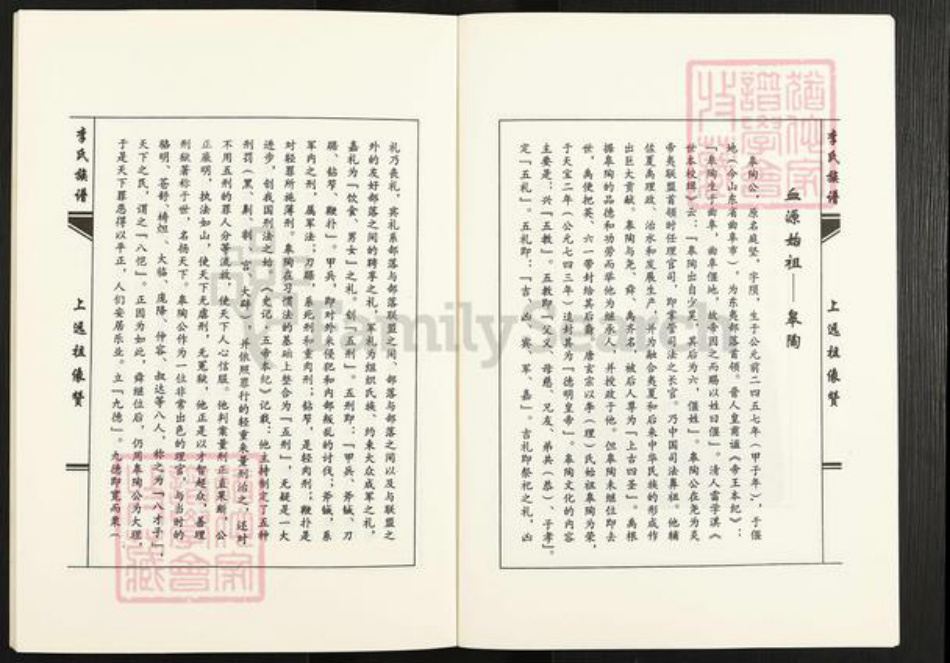 李氏族谱
上远祖像赞
血源始祖——皋陶
皋陶公，原名庭坚，字陨，生于公元前二四五七年（甲子年），于偃
地（今山东省曲阜市），为东夷部落首领。晋人皇甫谧《帝王本纪》：
「皋陶生于曲阜，曲阜偃地，故帝因之而赐以姓曰偃」。清人雷学淇《
世本校辑》云：「皋陶出自少昊，其后为六，偃姓」。皋陶公在尧为炎
帝夷联盟首领时任理官司，即掌管司法之长官。乃中国司法鼻祖。他辅
佐夏禹理政、治水和发展生产，并为融合夷夏和后来中华民族的形成作
出巨大贡献。皋陶与尧、舜、禹齐名，被后人尊为「上古四圣」。禹根
据皋陶的品德和功劳而举他为继承人，并授政于他，但皋陶未继位即去
世，禹便把英、六一带封给其后裔。唐玄宗以李（理）氏始祖皋陶为荣，
于天宝二年（公元七四三年）追封其为「德明皇帝」。皋陶文化的内容
主要是：兴「五教」。五教即「父义、母慈、兄友、弟共（恭）、子孝」。
定「五礼」。五礼即：「吉、凶、宾、军、嘉」。吉礼即祭祀之礼，凶
礼乃丧礼，宾礼系部落与部落联盟之间、部落与部落之间以及与联盟之
外的友好部落之间的聘享之礼，军礼为组织氏族、约束大众成军之礼，
嘉礼为「饮食、男女」之礼。创「五刑」。五刑即：「甲兵、斧钺、刀
锯、钻笮、鞭扑」。甲兵，即对外来侵犯和内部叛乱的讨伐；斧钺，系
军内之刑，属军法；刀锯，系死刑和重肉刑；钻笮，是轻肉刑；鞭扑是
对轻罪所施薄刑。皋陶在习惯法的基础上整合为「五刑」，无疑是一大
进步，创我国刑法之始。《史记·五帝本纪》记载：他主持制定了五种
刑罚（墨、劓、剕、宫、大辟），并依照罪行的轻重来量刑治之，还对
不用五刑的罪人分等流放，使天下人心信服。他判案量刑正直果断，公
正廉明，执法如山，使天下无虐刑，无冤狱，他正是以才智超众、善理
刑狱著称于世，名扬天下。皋陶公作为一位非常出色的理官，与当时的
天下之民，谓之「八恺」。正因为如此，舜继位后，仍用皋陶公为大理，
于是天下罪恶得以平正，人们安居乐业。立「九德」。九德即宽而栗（
李氏族谱
上远祖像赞
FamilySearch